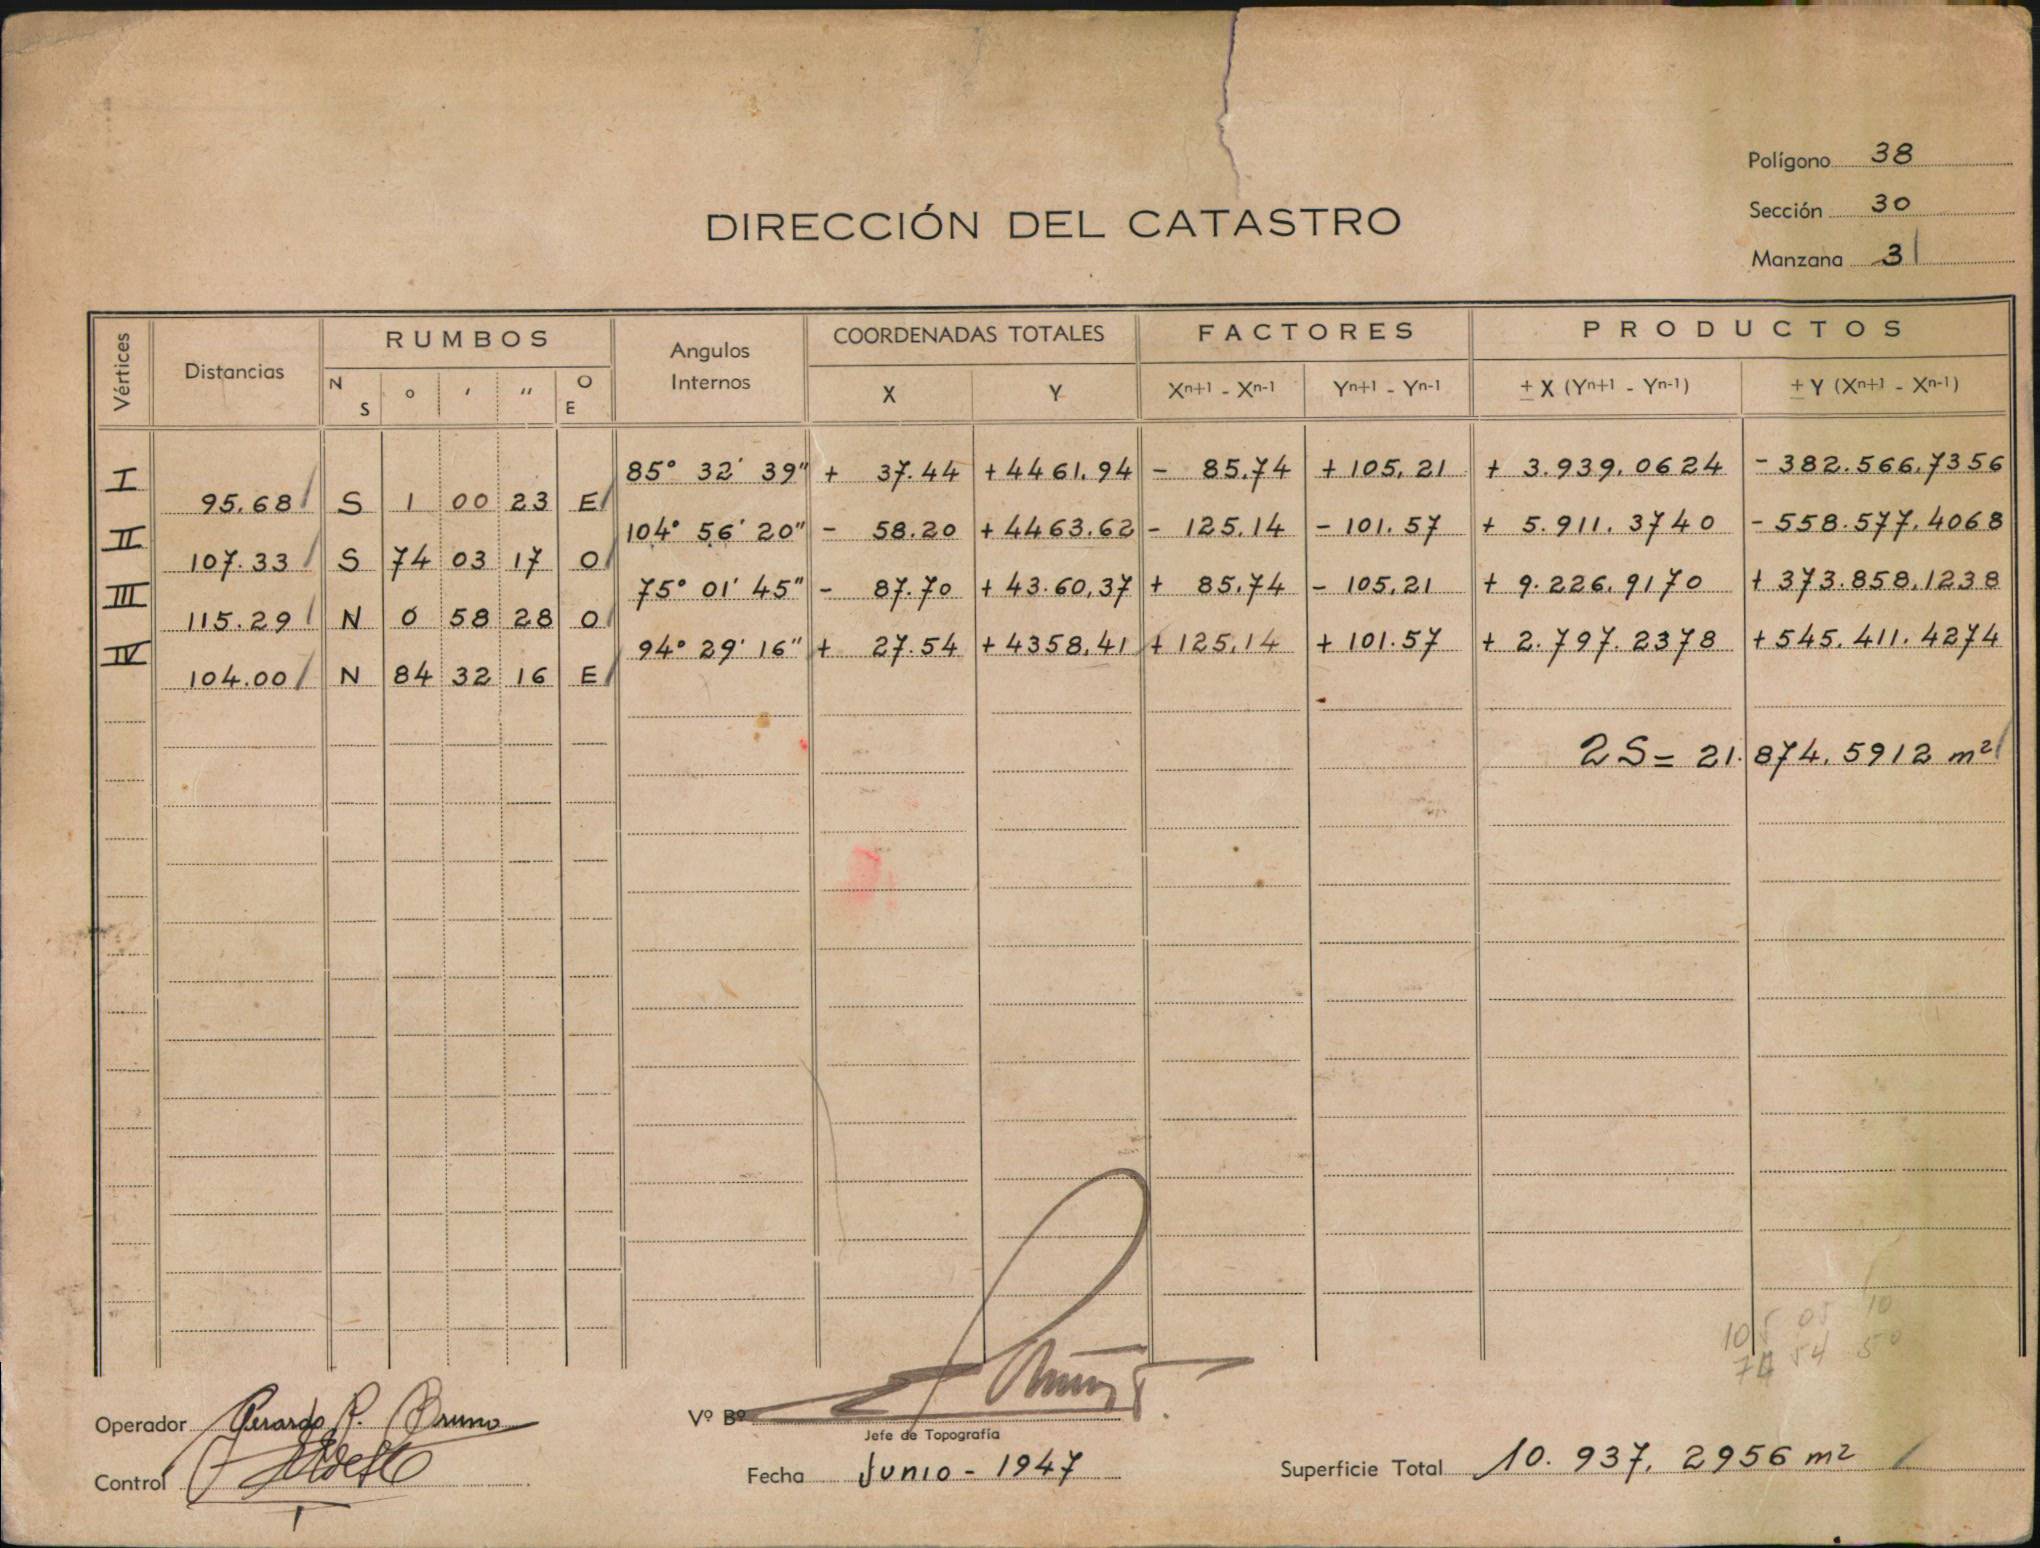 Polígono 38
Sección 30
Manzana 31
DIRECCIÓN DEL CATASTRO
Vértices Distancias RUMBOS Angulos Internos COORDENADAS TOTALES FACTORES PRODUCTOS
N S ° ' " O E X Y Xn+1 - Xn-1 Yn+1 - Yn-1 ± X (Yn+1 - Yn-1) ± Y (Xn+1 - Xn-1)
I 85° 32' 39" + 37.44 + 4461.94 - 85.74 + 105.21 + 3.939.0624 - 382.566.7356
95.68 S 1 00 23 E
II 104° 56' 20" - 58.20 + 4463.62 - 125.14 - 101.57 + 5.911.3740 - 558.577.4068
107.33 S 74 03 17 O
III 75° 01' 45" - 87.70 + 43.60,37 + 85.74 - 105.21 + 9.226.9170 + 373.858.1238
115.29 N 0 58 28 O
IV 94° 29' 16" + 27.54 + 4358.41 + 125.14 + 101.57 + 2.797.2378 + 545.411.4274
104.00 N 84 32 16 E
2S = 21.874.5912 m²
105 05 10
74 54 50
Operador Gerardo R. Bruno
Control
Vº Bº
Jefe de Topografía
Fecha Junio - 1947
Superficie Total 10.937.2956 m²